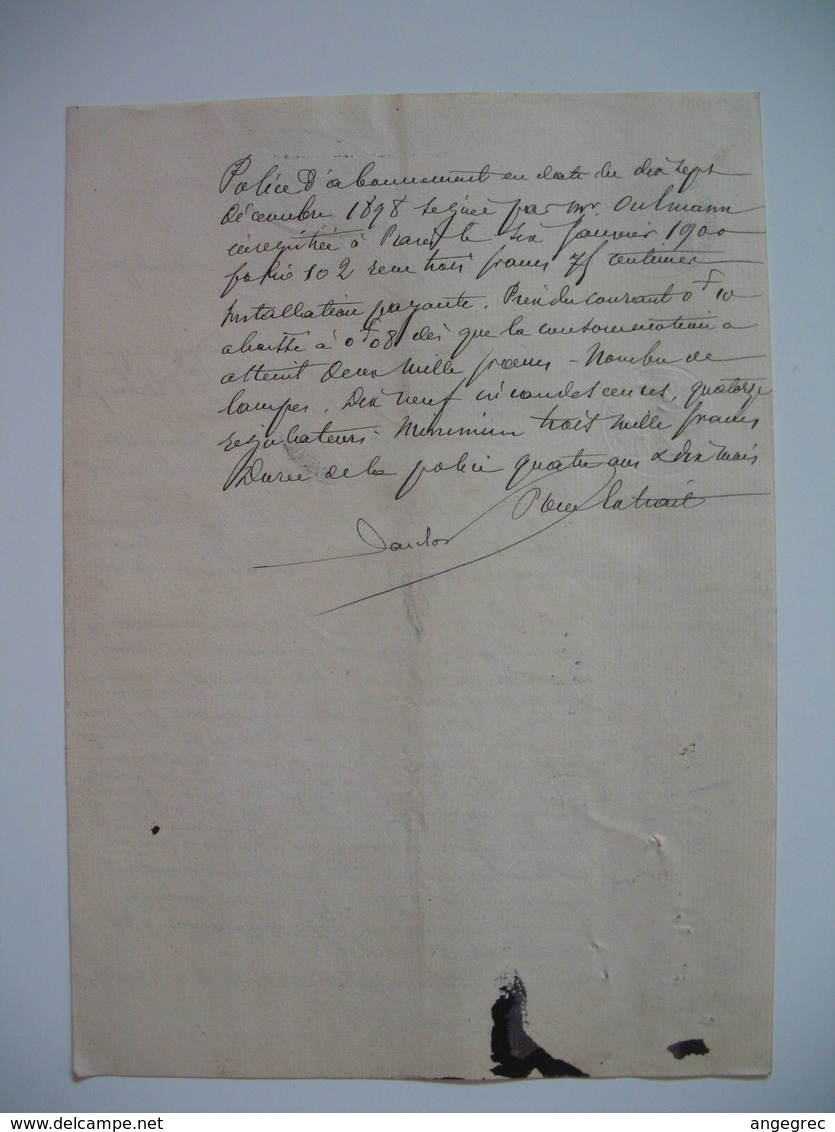 Police d'abonnement en date du dix sept
décembre 1898 signée par mr. Oulmann
enregistrée à Paris le six Janvier 1900
folio 102 recu trois francs 75 centimes
Installation payante. Prix du courant 0f10
abaissé à 0f08 dès que la consommation a
atteint deux mille francs - Nombre de
lampes. Dix neuf incandescences, quatorze
régulateurs. Minimum trois mille francs
Durée de la police quatre ans & dix mois
Pour Extrait
delcampe.net
angegrec